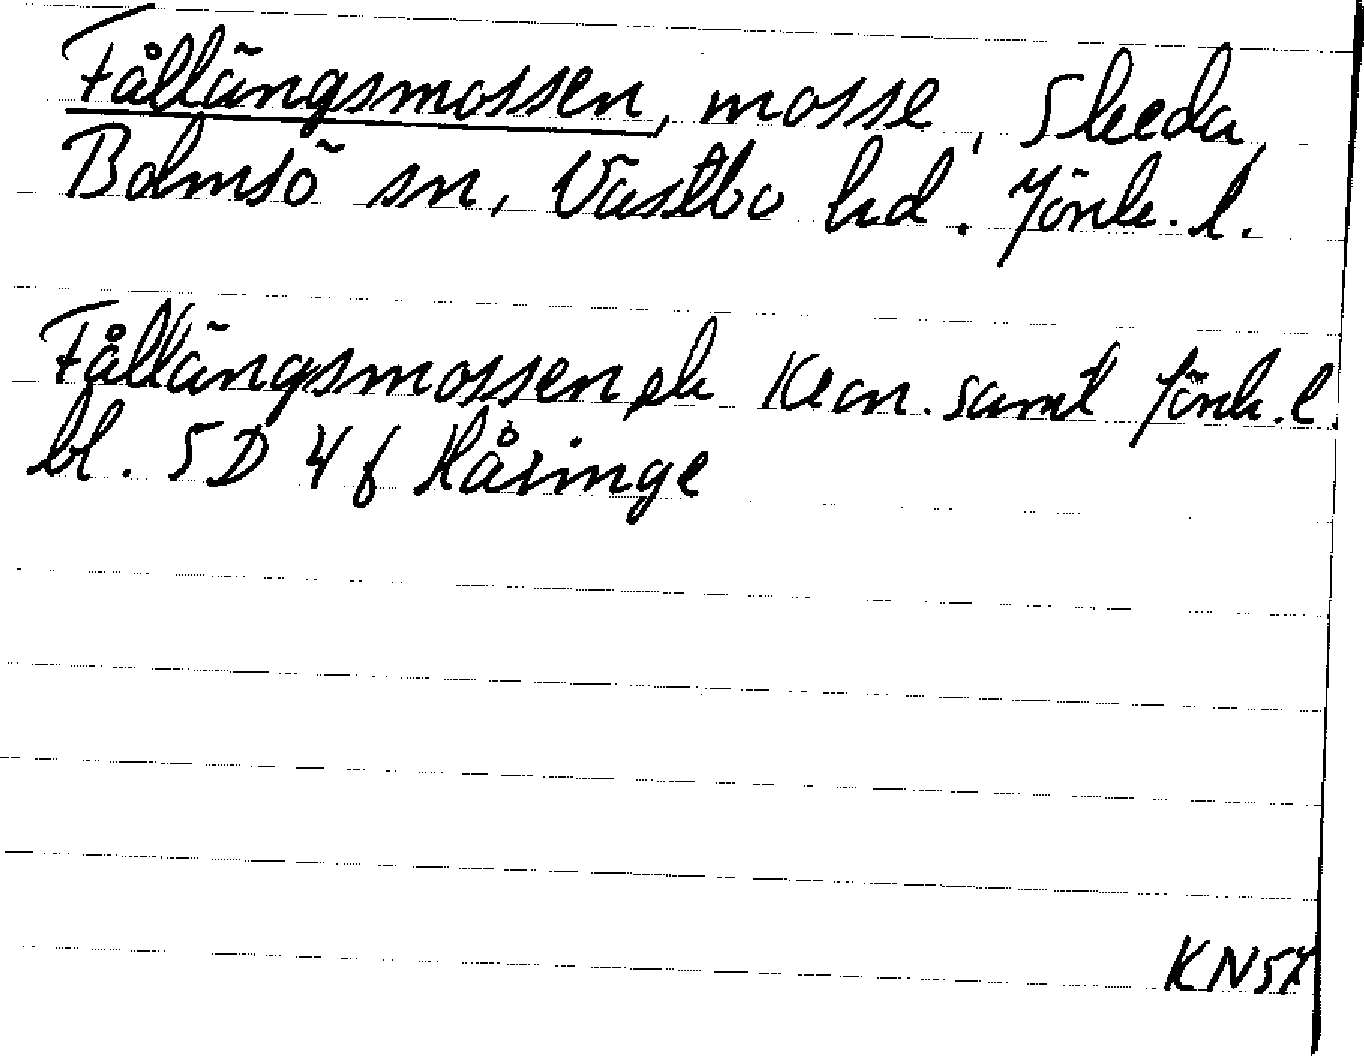 Fållängsmossen, mosse, Skeda,
Bolmsö sn, Västbo hd. Jönk. l.
Fållängsmossen ek Kcon. saml Jönk. l.
bl. 5D 4f Håringe
KN57